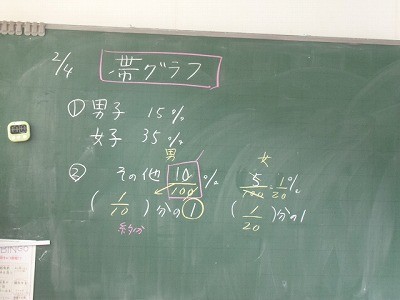 2/4 帯グラフ
① 男子 15%
女子 35%
男 女
② その他 10/100 % 5/100 = 1/20 %
( 1/10 )分の① ( 1/20 )分の1
BINGO